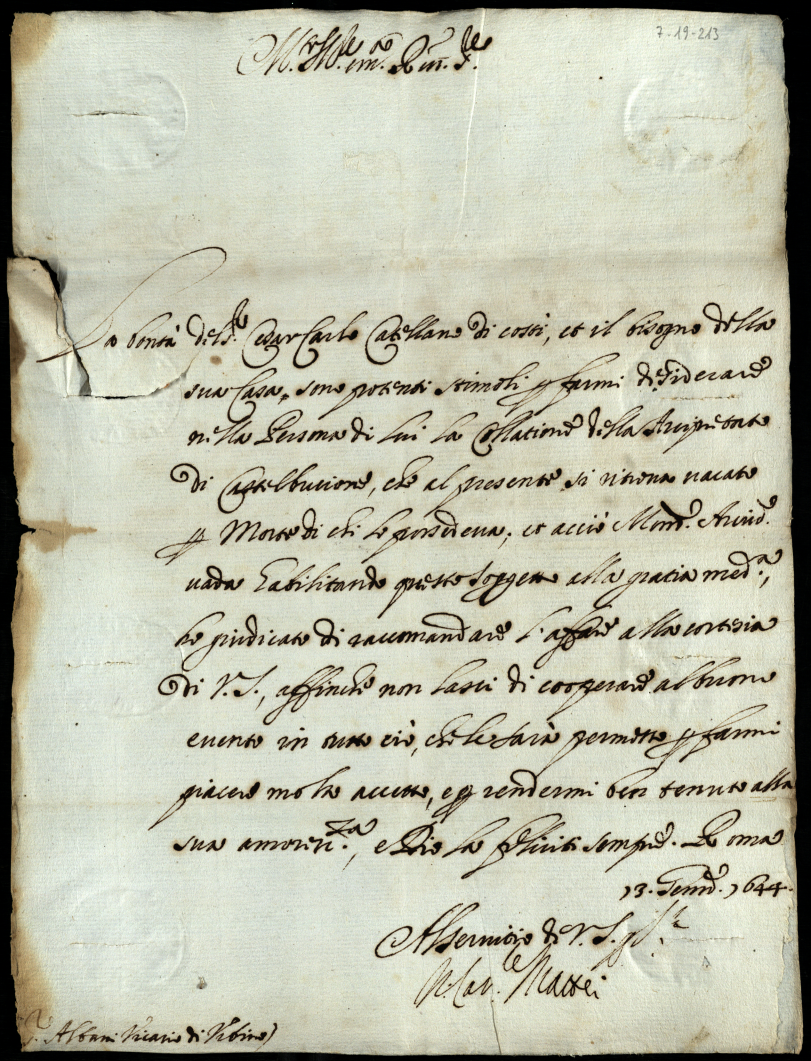 7-19-213
M.to Ill.re em.to R.mo S.re
La bontà del S.r Cesar Carlo Catellano di costì, et il bisogno della
sua Casa, sono potenti stimoli p farmi desiderare
nella Persona di lui la Collatione della Arcipretato
di Castelbuccione, che al presente si ritrova vacato
p Morte di chi lo possedeva; et acciò Mons.r Arciv.o
vada habilitando questo Soggetto alla gratia med.a,
ho giudicato di raccomandare l'affare alla cortesia
di V.S., affinche non lasci di cooperare al buon
evento in tutto ciò, che le sarà permesso p farmi
piacere molto accetto, e p rendermi ben tenuto alla
sua amorev.za, e Dio la feliciti sempre. Roma
13. Genn.o 1644.
Al servitio di V.S.
Il Car.le Mattei
Albani Vicario di Urbino)